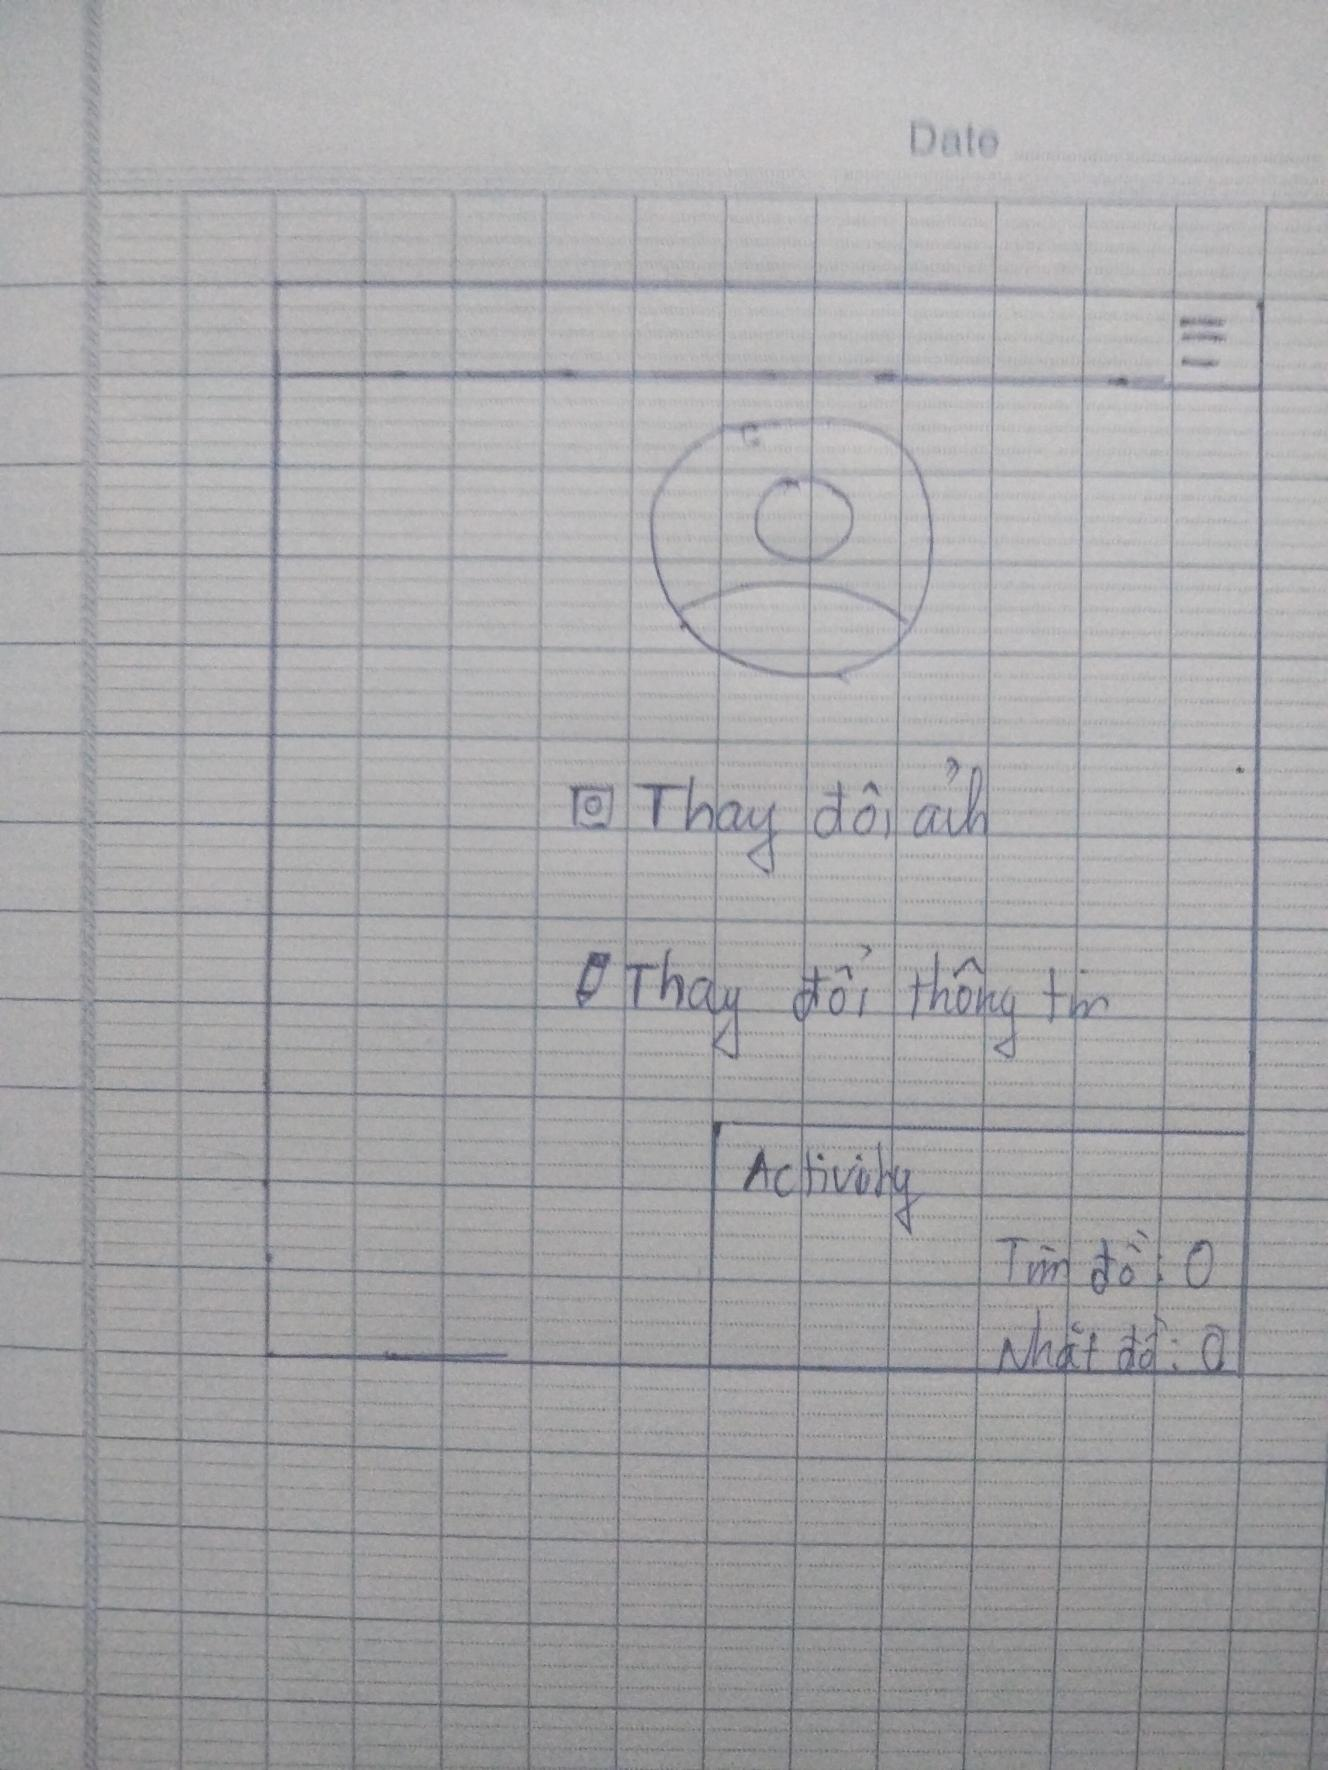 Date
Thay đôi ảnh
Thay đổi thông tin
Activity
Tìm đồ: 0
Nhặt đồ: 0